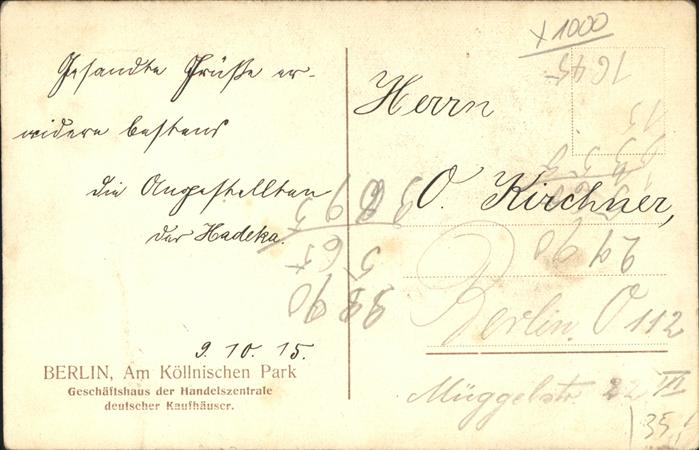 Gesandte Grüße er-
widern bestens
die Angestellten
der Hadeka.
9. 10. 15.
BERLIN, Am Köllnischen Park
Geschäftshaus der Handelszentrale
deutscher Kaufhäuser.
x 1000
Herrn
O. Kirchner,
Berlin. O 112
Müggelstr. 22 III
35